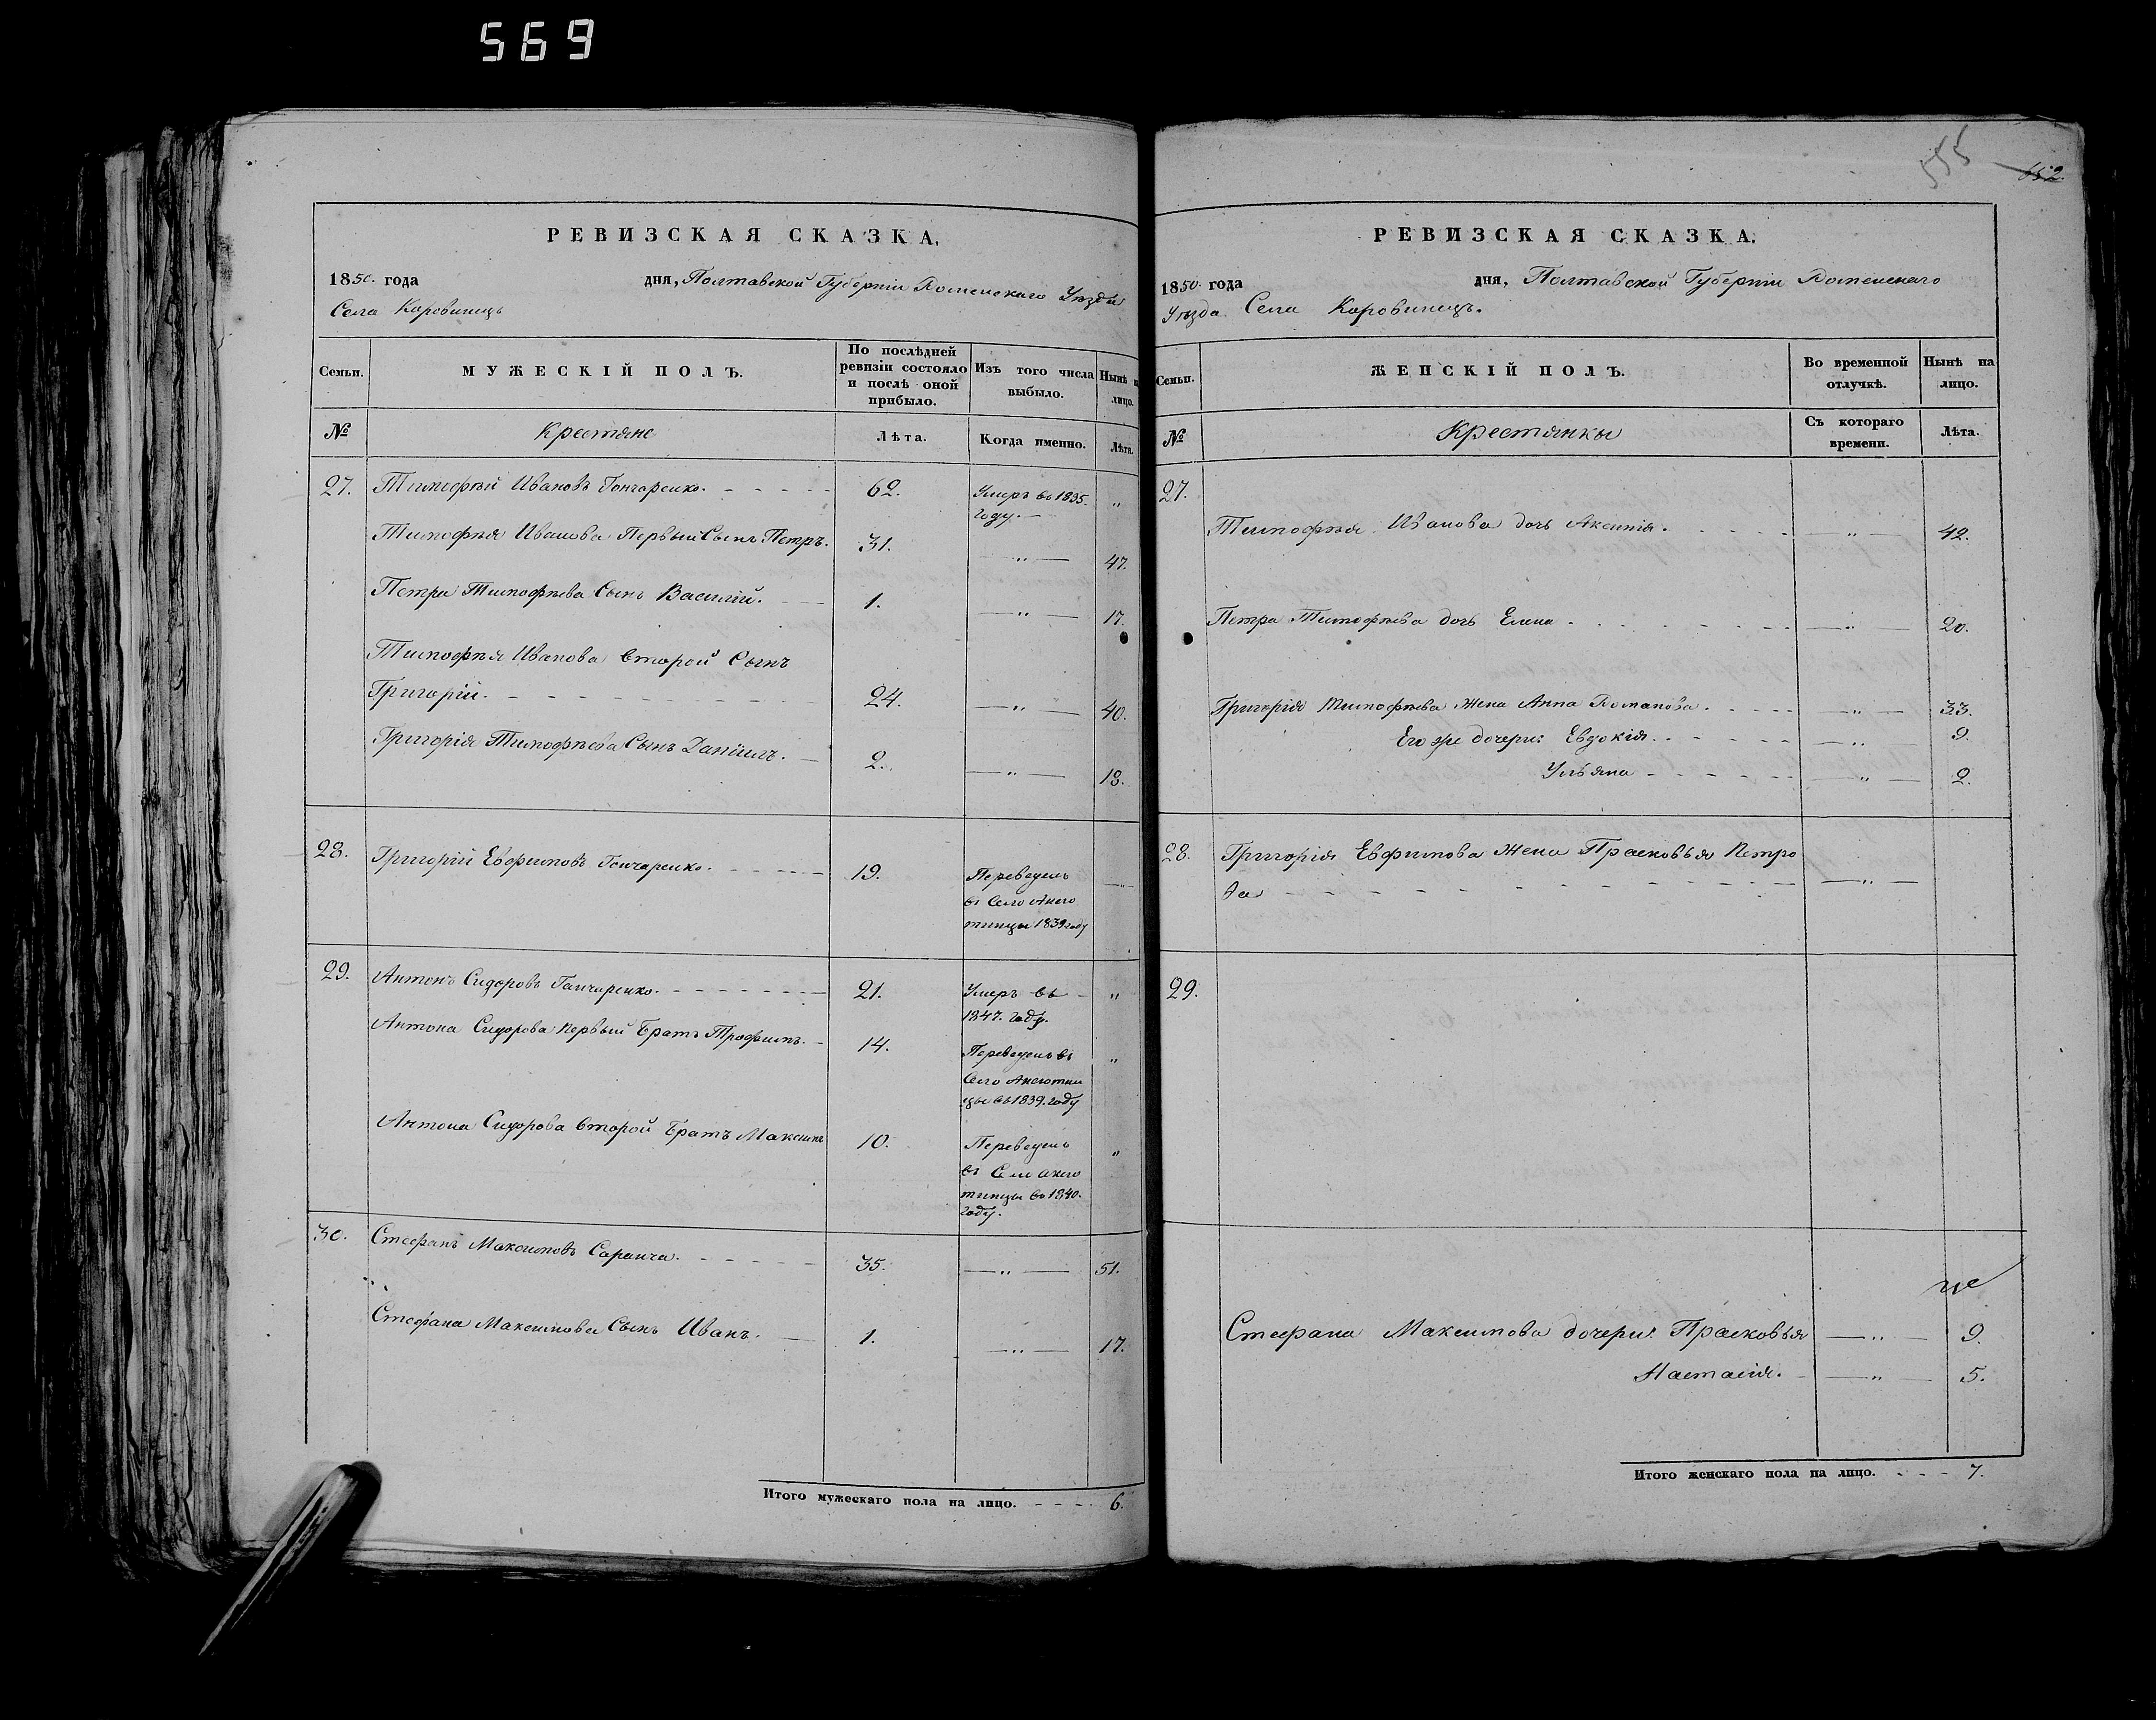 569
РЕВИЗСКАЯ СКАЗКА,
1850. года дня, Полтавской Губерніи Роменскаго Уѣзда
Села Коровинецъ
Семьи. МУЖЕСКІЙ ПОЛЪ. По послѣдней ревизіи состояло и послѣ оной прибыло. Изъ того числа выбыло. Нынѣ н лицо.
№ Крестяне Лѣта. Когда именно. Лѣта.
27. Тимофѣй Ивановъ Гончаренко. 62. Умеръ въ 1835. „
году.
Тимофѣя Иванова Первый Сынъ Петръ. 31. „ 47.
Петра Тимофѣева Сынъ Василій. 1. „ 17.
Тимофѣя Иванова Второй Сынъ
Григорій. 24. „ 40.
Григорія Тимофѣева Сынъ Даніилъ. 2. „ 18.
28. Григорій Евфимовъ Гончаренко. 19. Переведенъ „
въ Село Аксю
тинцы 1839 году
29. Антонъ Сидоровъ Ганчаренко. 21. Умеръ въ „
1847. году.
Антона Сидорова Первый Братъ Трофимъ. 14. Переведенъ въ „
Село Аксютин
цы въ 1839. году
Антона Сидорова Второй Братъ Максимъ 10. Переведенъ „
въ Село Аксю
тинцы въ 1840.
году.
30. Стефанъ Максимовъ Саранча. 35. „ 51.
Стефана Максимова Сынъ Иванъ. 1. „ 17.
Итого мужескаго пола на лицо. 6.
555 652.
РЕВИЗСКАЯ СКАЗКА.
1850. года дня, Полтавской Губерніи Роменскаго
Уѣзда Села Коровинецъ.
Семьи. ЖЕНСКІЙ ПОЛЪ. Во временной отлучкѣ. Нынѣ на лицо.
№ Крестянки Съ котораго времени. Лѣта.
27.
Тимофѣя Иванова дочь Аксинія. „ 42.
Петра Тимофѣева дочь Елена „ 20.
Григорія Тимофѣева Жена Анна Романова. „ 33.
Его же дочери: Евдокія. „ 9.
Ульяна „ 2.
28. Григорія Евфимова Жена Прасковья Петро
ва „
29.
Стефана Максимова дочери: Прасковья „ 9.
Настасія. „ 5.
Итого женскаго пола на лицо. 7.